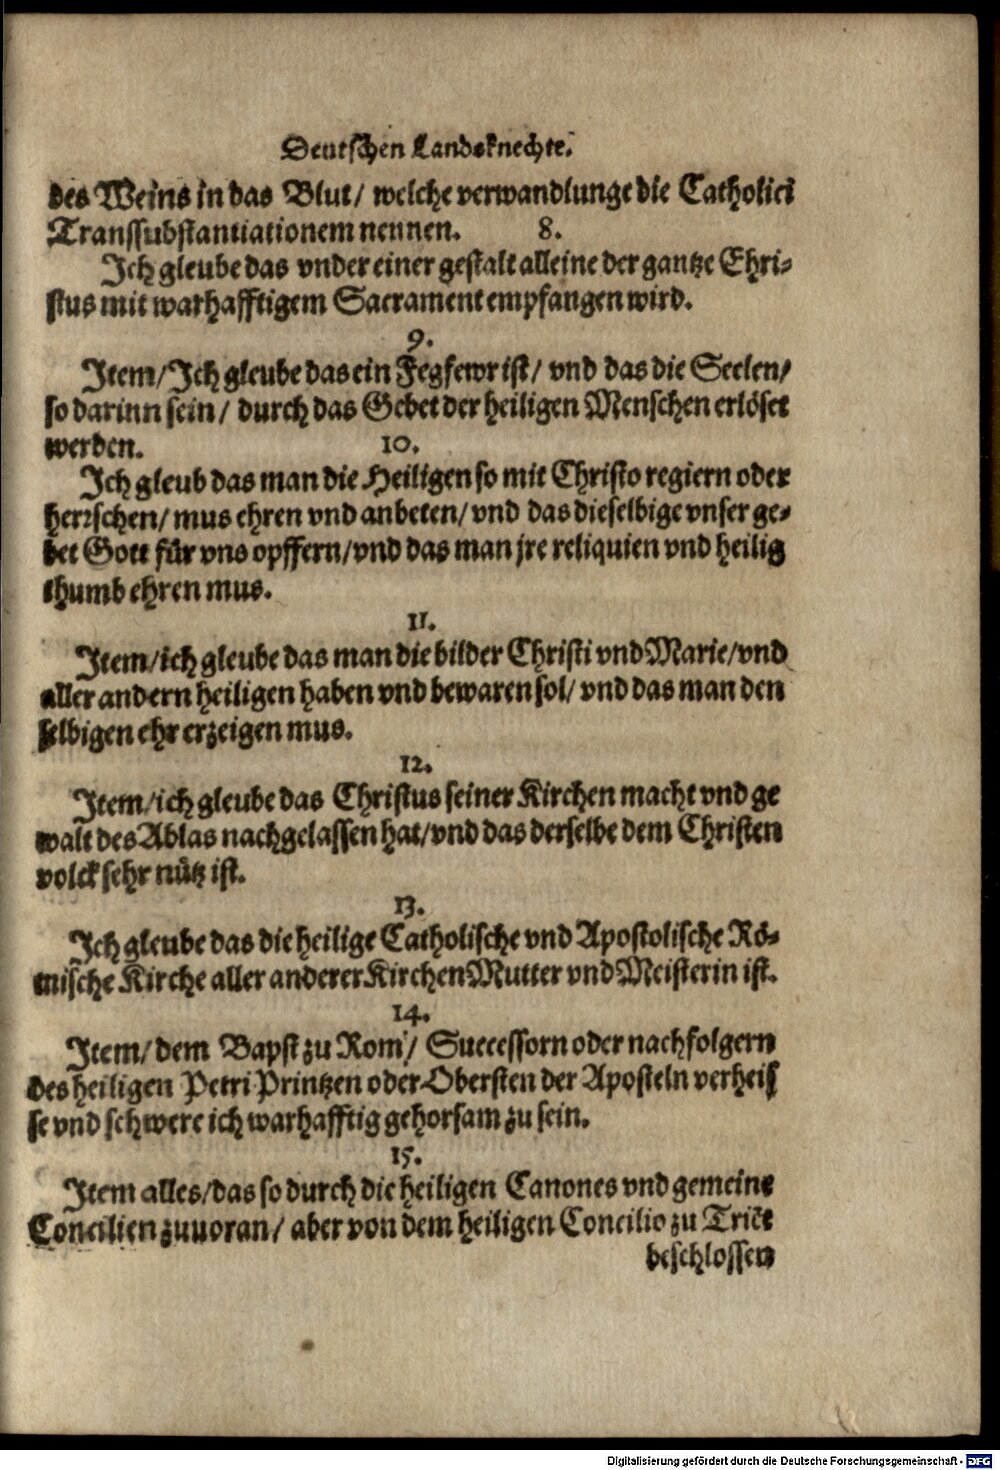 Deutschen Landsknechte.
des Weins in das Blut/ welche verwandlunge die Catholici
Transsubstantiationem nennen. 8.
Ich gleube das vnder einer gestalt alleine der gantze Chri-
stus mit warhafftigem Sacrament empfangen wird.
9.
Item/ Ich gleube das ein Fegfewr ist/ vnd das die Seelen/
so darinn sein/ durch das Gebet der heiligen Menschen erlöset
werden. 10.
Ich gleub das man die Heiligen so mit Christo regiern oder
herrschen/ mus ehren vnd anbeten/ vnd das dieselbige vnser ge-
bet Gott für vns opffern/ vnd das man jre reliquien vnd heilig
thumb ehren mus.
11.
Item/ ich gleube das man die bilder Christi vnd Marie/ vnd
aller andern heiligen haben vnd bewaren sol/ vnd das man den
selbigen ehr erzeigen mus.
12.
Item/ ich gleube das Christus seiner Kirchen macht vnd ge
walt des Ablas nachgelassen hat/ vnd das derselbe dem Christen
volck sehr nütz ist.
13.
Ich gleube das die heilige Catholische vnd Apostolische Rö-
mische Kirche aller anderer Kirchen Mutter vnd Meisterin ist.
14.
Item/ dem Bapst zu Rom/ Successorn oder nachfolgern
des heiligen Petri Printzen oder Obersten der Aposteln verheis
se vnd schwere ich warhafftig gehorsam zu sein.
15.
Item alles/ das so durch die heiligen Canones vnd gemeine
Concilien zuuoran/ aber von dem heiligen Concilio zu Triēt
beschlossen
Digitalisierung gefördert durch die Deutsche Forschungsgemeinschaft - DFG